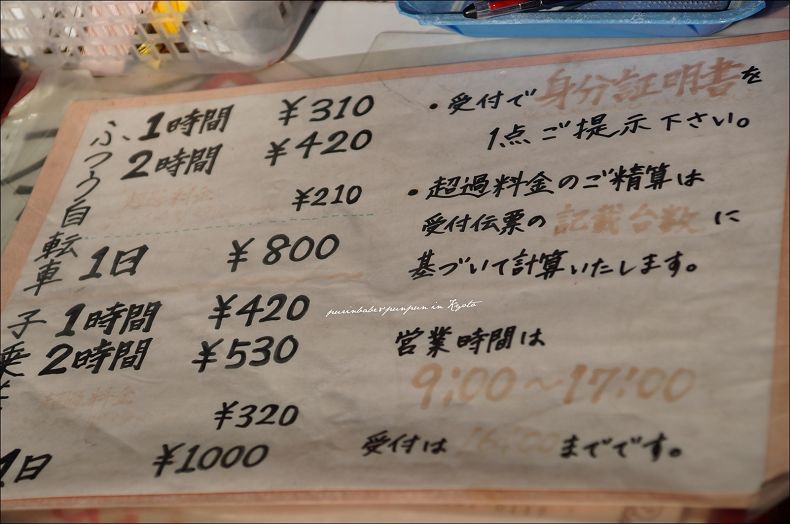 ふつう自転車
1時間 ¥310
2時間 ¥420
超過料金 ¥210
1日 ¥800
子
乗
1時間 ¥420
2時間 ¥530
超過料金
¥320
1日 ¥1000
・受付で身分証明書を
1点ご提示下さい。
・超過料金のご精算は
受付伝票の記載台数に
基づいて計算いたします。
営業時間は
9:00～17:00
受付は16:00までです。
purinbabe&punpun in Kyoto